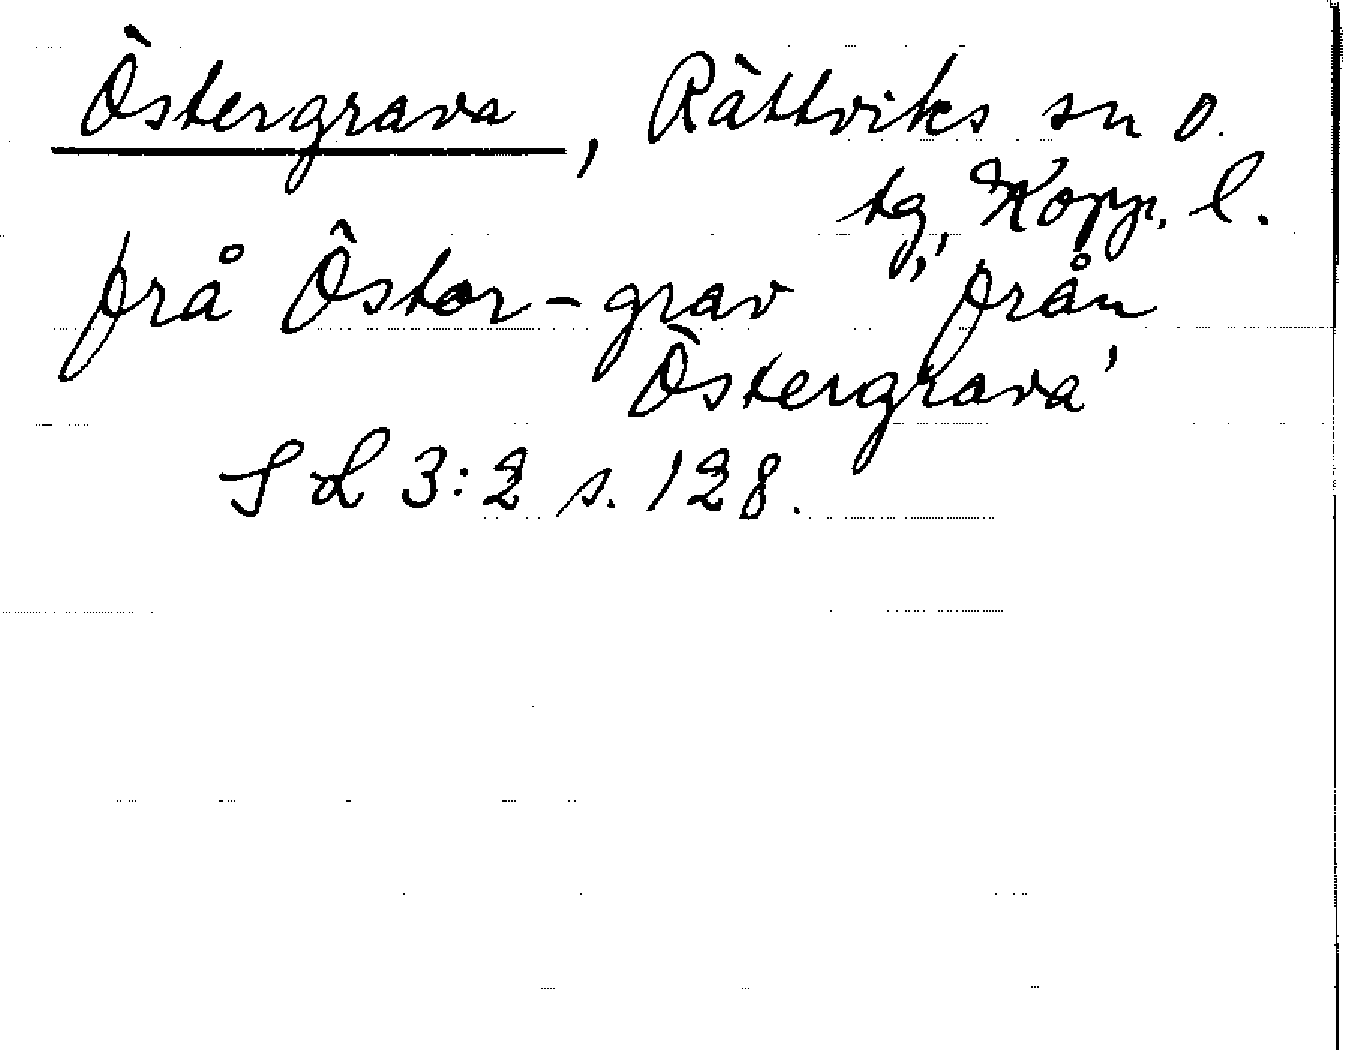 Östergrava, Rättviks sn o.
tg, Kopp. l.
frå Östor-grav 'från
Östergrava'
SL 3:2 s. 128.